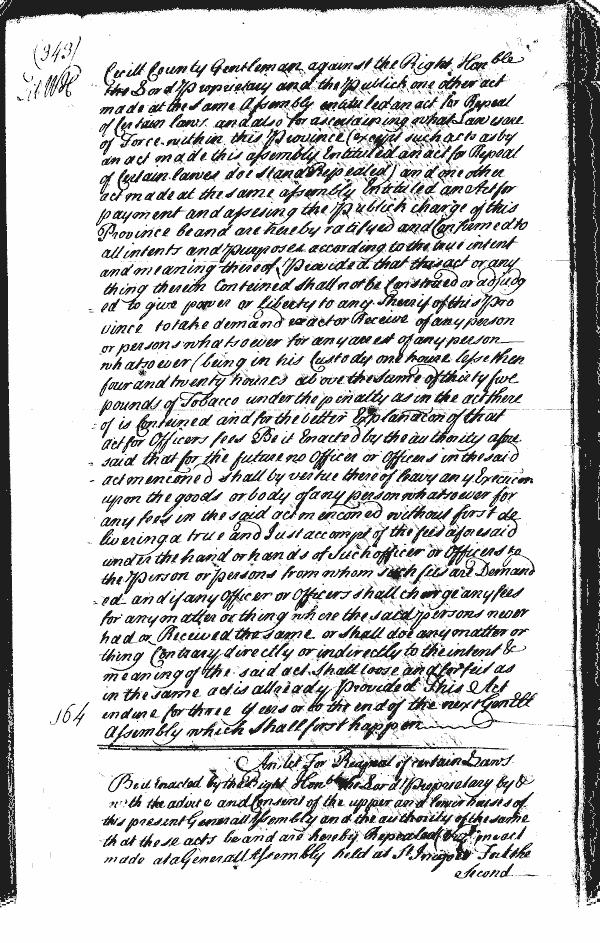 (343)
Lib WH
Cecill County Gentleman against the Right Honble
the Lord Proprietary and the Publick one other act
made at the same Assembly entituled an act for Repeal
of Certain laws and also for ascertaining what Laws are
of Force within this Province (except such acts as by
an act made this assembly Entituled an act for Repeal
of Certain lawes doe stand Repealed) and one other
act made at the same assembly Entituled an Act for
payment and assessing the Publick charge of this
Province be and are hereby ratifyed and Confirmed to
all intents and Purposes according to the true intent
and meaning thereof Provided that this act or any
thing therein Conteined shall not be Construed or adjudg
ed to give power or liberty to any Sherriff of this Pro
vince to take demand exact or Receive of any person
or persons whatsoever for any arrest of any person
whatsoever (being in his Custody one houre lesse then
four and twenty houres above the same of thirty five
pounds of Tobacco under the penalty as in the act there
of is Conteined and for the better Explanacon of that
act for Officers fees Be it Enacted by the authority afore
said that for the future no Officer or Officers in the said
act menconed shall by vertue thereof leavy any Execucon
upon the goods or body of any person whatsoever for
any fees in the said act menconed without first de
livering a true and Just accompt of the fees aforesaid
under the hand or hands of such officer or Officers to
the Person or persons from whom such fees are Demand
ed and if any Officer or Officers shall charge any fees
for any matter or thing where the said persons never
had or Received the same or shall doe any matter or
thing Contrary directly or indirectly to the intent &
meaning of the said act shall loose and forfeit as
in the same act is allready Provided This Act
endure for three Years or to the end of the next Genlll
164
Assembly which shall first happen
An Act For Repeal of certain Laws
Be it Enacted by the Right Honble the Lord Proprietary by &
with the advice and Consent of the upper and lower houses of
this present Generall Assembly and the authority of the same
that these acts be and are hereby Repealed (viz) one act
made at a Generall Assembly held at St Inegoes Fort the
Second